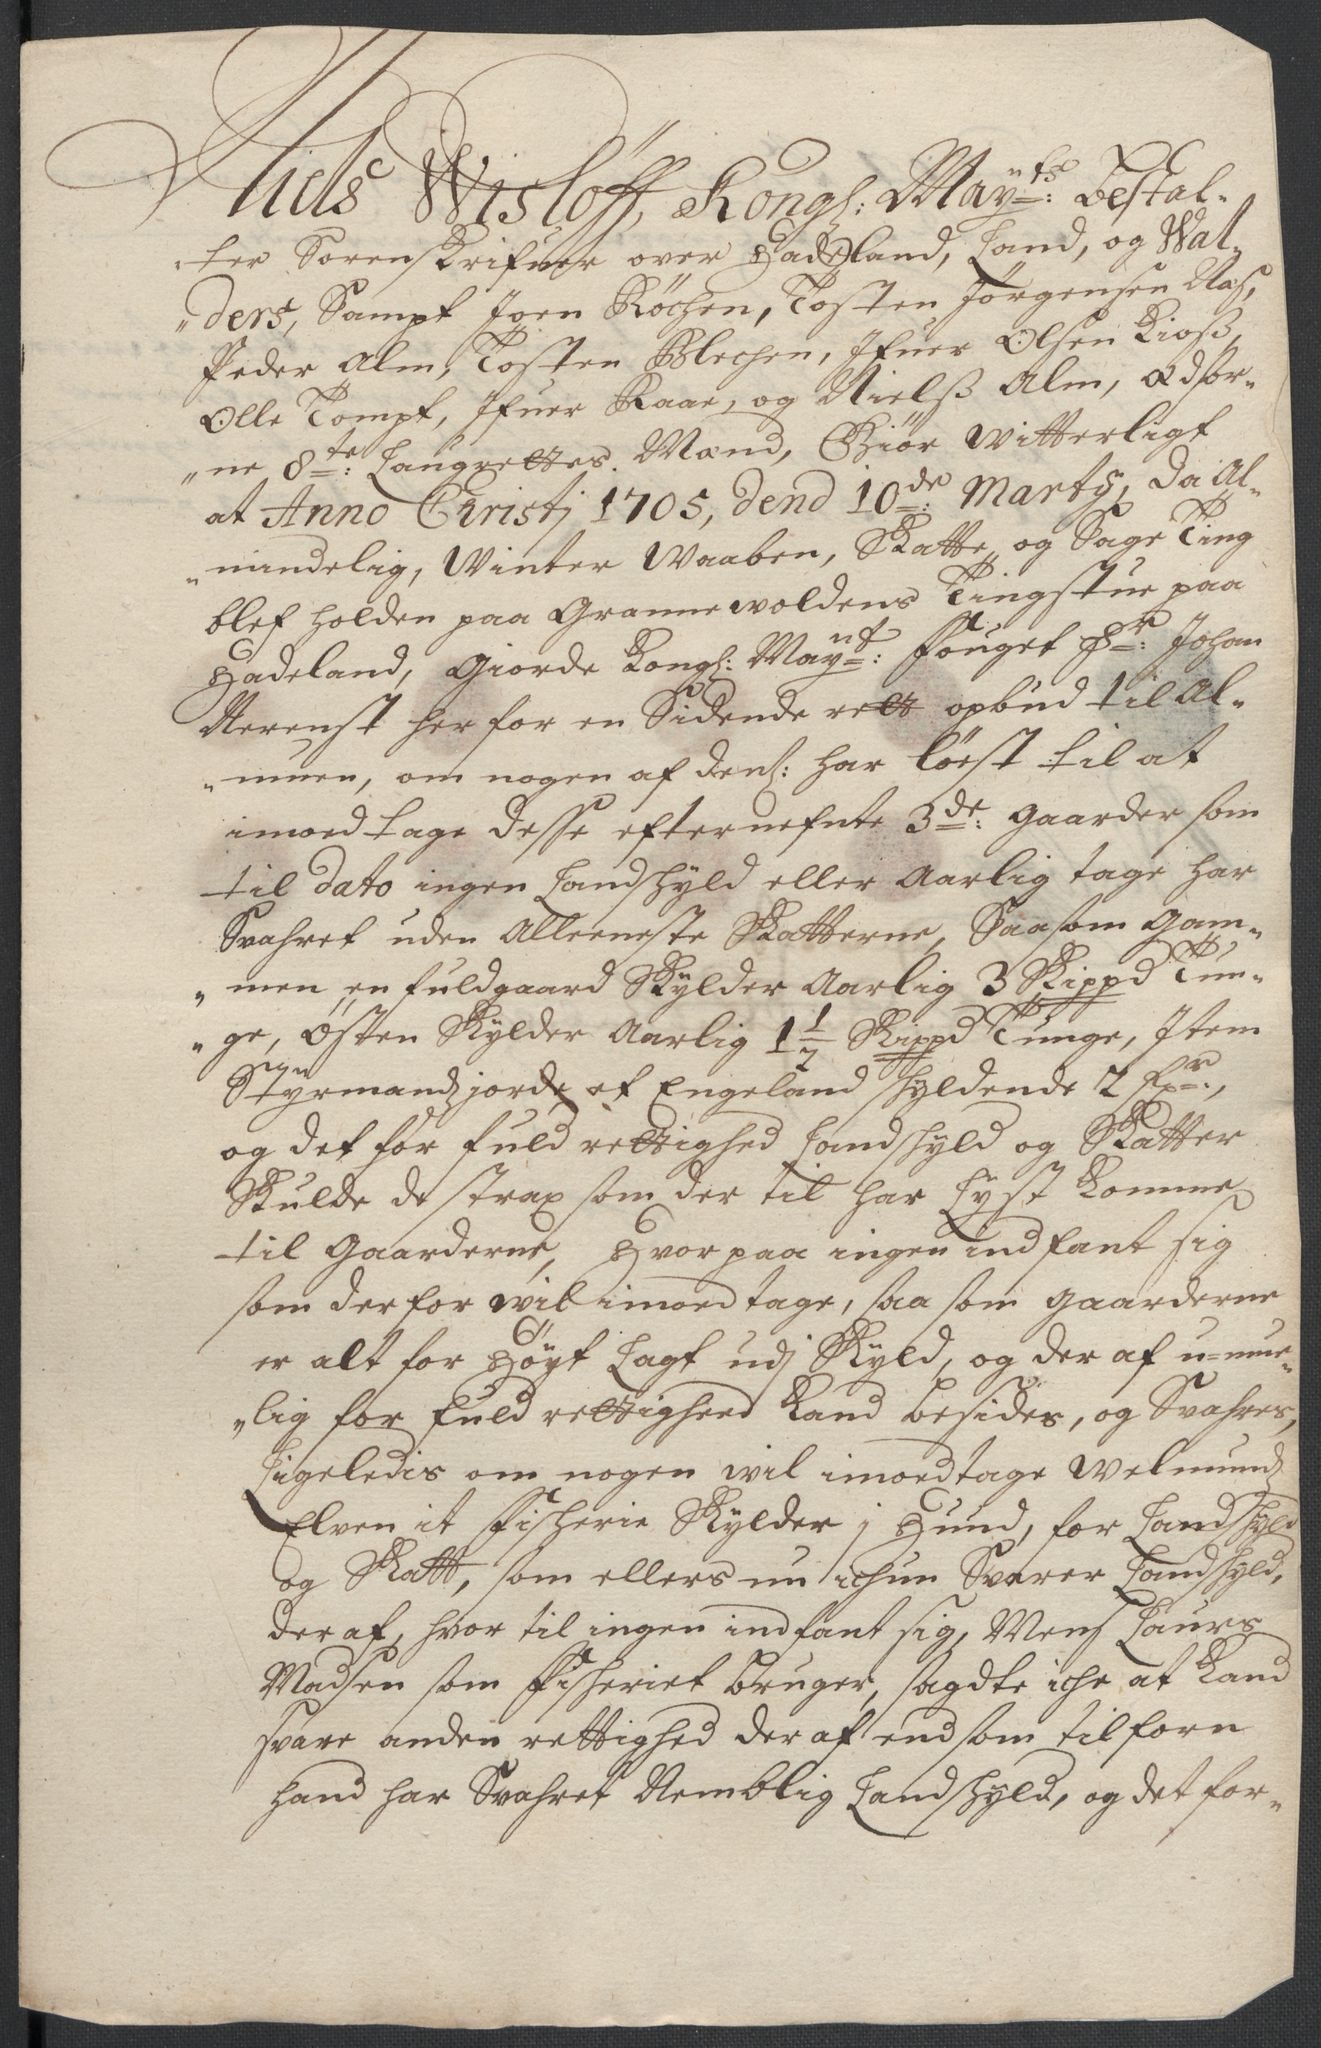 Niels Wisløff, Kongl: May:ts bestal-
ter Sorenskrifuer over Hadeland, Land, og Wal-
ders, Sampt Joen Røchen, Tosten Jørgensen Næs,
Peder Alm, Tosten Blechen, Ifuer Olsen Kioß,
Olle Tompt, Ifuer Raae, og Nielß Alm, Edsor-
ne 8te: Laugrettes Mænd, Giør Witterligt
at Anno Christj 1705, dend 10de: Martij, da Al-
mindelig, Winter Waaben, Skatte og Sage Ting
blef holden paa Grannewoldens Tingstue paa
Hadeland, Giorde Kongl: May:t: Fouget Hr: Johan
Nerenst her for en Sidende rett opbud til Al-
muen, om nogen af denl: har løest til at
imoedtage desse efternefnte 3de: gaarder som
til dato ingen Landshyld eller Aarlig tage har
Svahret uden Alleeneste Skatterne, Saasom Gam-
men en fuldgaard Skylder Aarlig 3 Skippd Tun-
ge, Østen Skylder Aarlig 1 1/2 Skippd Tunge, Item
Styrmandsjorde af Engeland shyldende 2 Fr:,
og det for fuld rettighed Landshyld og Skatter
Skulde de strax som der til har Lyst komme
til Gaarderne, Hvorpaa ingen indfant sig
som derfor wil imoedtage, saa som gaarderne
er alt for Høyt Lagt udj Skyld, og der af u-mue-
lig for fuld rettigheed kand besides, og Svahres,
Ligeledis om nogen wil imoedtage Welmunds
Elven it Fisherie Skylder j Hund, for Landshyld
og Skatt, som ellers nu ichun Svarer Landshyld,
deraf, hvor til ingen indfant sig, Mens Laurs
Madsen som Fisheriet bruger, sagdte iche at kand
svare anden rettighed deraf end som tilforn
hand har Svahret Nemblig Landshyld, og det for-